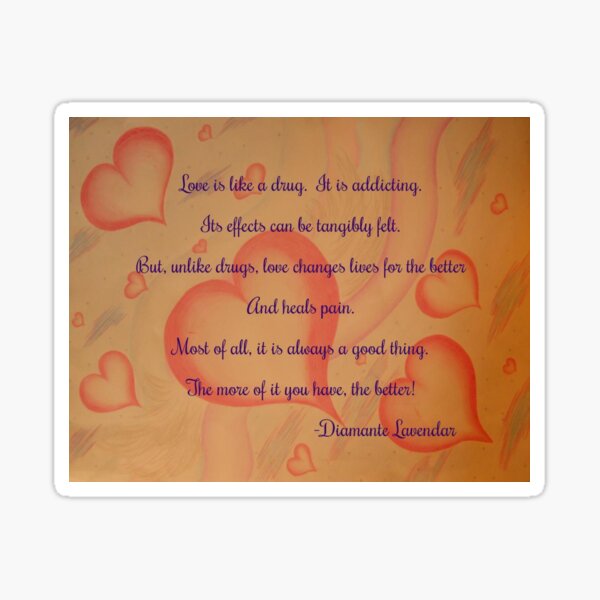 Love is like a drug.  It is addicting.
Its effects can be tangibly felt.
But, unlike drugs, love changes lives for the better
And heals pain.
Most of all, it is always a good thing.
The more of it you have, the better!
-Diamante Lavendar